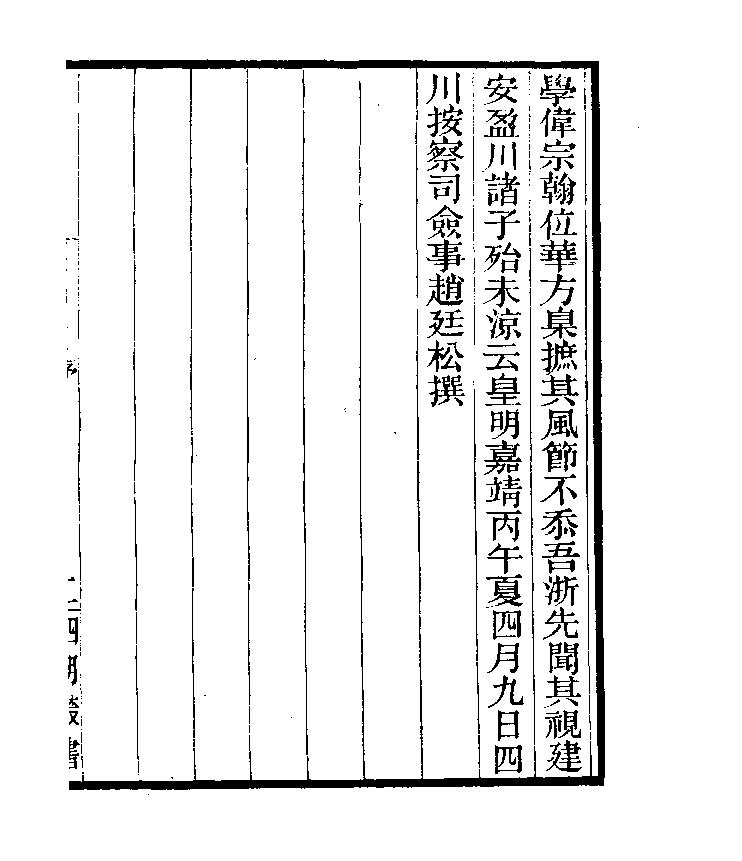 學偉宗翰位華方臬摭其風節不忝吾浙先聞其視建
安盈川諸子殆未涼云皇明嘉靖丙午夏四月九日四
川按察司僉事趙廷松撰
序
四明叢書